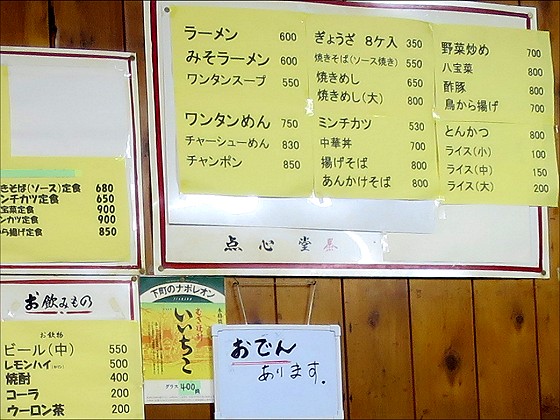 ラーメン 600
みそラーメン 600
ワンタンスープ 550
ワンタンめん 750
チャーシューめん 830
チャンポン 850
ぎょうざ 8ケ入 350
焼きそば(ソース焼き) 550
焼きめし 650
焼きめし(大) 800
ミンチカツ 530
中華丼 700
揚げそば 800
あんかけそば 800
野菜炒め 700
八宝菜 800
酢豚 800
鳥から揚げ 700
とんかつ 800
ライス(小) 100
ライス(中) 150
ライス(大) 200
点心堂
きそば(ソース)定食 680
ンチカツ定食 650
宝菜定食 900
ンカツ定食 900
ら揚げ定食 850
お飲みもの
お飲物
ビール(中) 550
レモンハイ 500
焼酎 400
コーラ 200
ウーロン茶 200
下町のナポレオン
いいちこ
グラス 400円
おでん
あります。